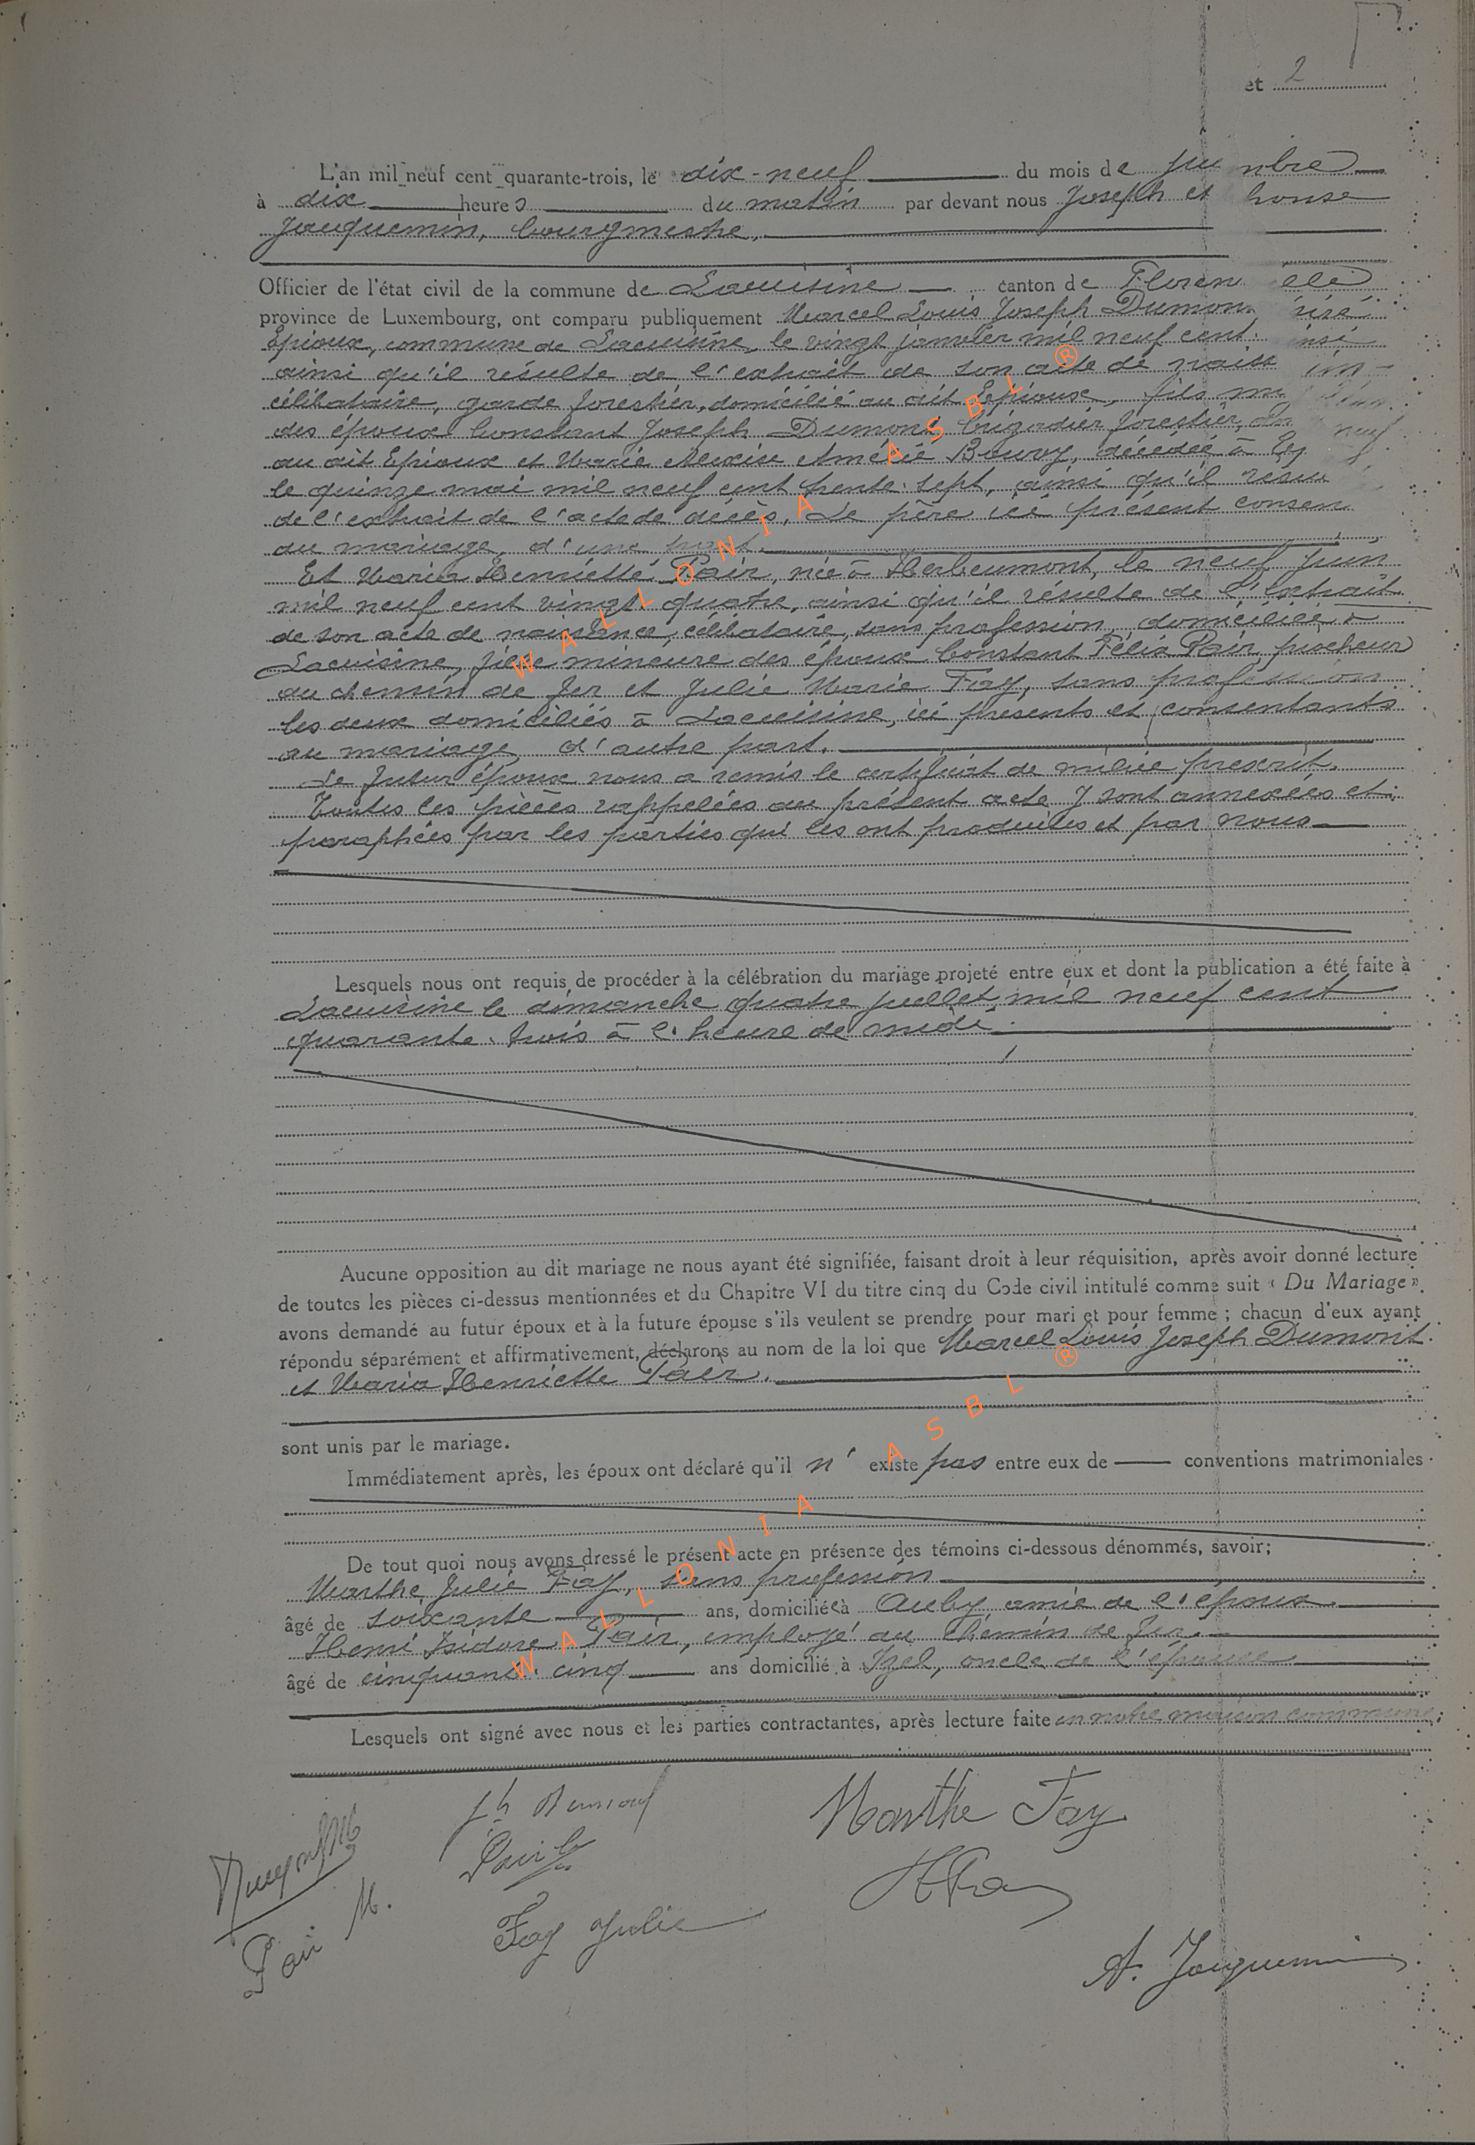 et 2
L'an mil neuf cent quarante-trois, le dix-neuf du mois de
à dix heures du matin par devant nous Joseph
Jacquemin, bourgmestre,
Officier de l'état civil de la commune de Lacuisine canton de Floren
province de Luxembourg, ont comparu publiquement Marcel Louis Joseph Dumon
Epioux, commune de Lacuisine, le vingt janvier mil neuf cent
ainsi qu'il résulte de l'extrait de son acte de naiss
célibataire, garde forestier, domicilié au dit Epioux, fils
des époux Constant Joseph Dumont, brigadier forestier,
au dit Epioux et Marie Amélie décédée à
le quinze mai mil neuf cent trente-sept, ainsi qu'il résu
de l'extrait de l'acte de décès. Le père ici présent consen
au mariage, d'une part.
Et Maria Henriette Pair, née à Herbeumont, le neuf juin
mil neuf cent vingt-quatre, ainsi qu'il résulte de l'extrait
de son acte de naissance, célibataire, sans profession, domiciliée à
Lacuisine, fille mineure des époux Constant Félix Pair, piocheur
au chemin de fer et Julie Marie Fay, sans profession
les deux domiciliés à Lacuisine, ici présents et consentants
au mariage, d'autre part.
Le futur époux nous a remis le certificat de milice prescrit.
Toutes les pièces rappelées au présent acte y sont annexées et
paraphées par les parties qui les ont produites et par nous
Lesquels nous ont requis de procéder à la célébration du mariage projeté entre eux et dont la publication a été faite à
Lacuisine le dimanche quatre juillet mil neuf cent
quarante-trois à l'heure de midi.
Aucune opposition au dit mariage ne nous ayant été signifiée, faisant droit à leur réquisition, après avoir donné lecture
de toutes les pièces ci-dessus mentionnées et du Chapitre VI du titre cinq du Code civil intitulé comme suit « Du Mariage »,
avons demandé au futur époux et à la future épouse s'ils veulent se prendre pour mari et pour femme ; chacun d'eux ayant
répondu séparément et affirmativement, déclarons au nom de la loi que Marcel Louis Joseph Dumont
et Maria Henriette Pair.
sont unis par le mariage.
Immédiatement après, les époux ont déclaré qu'il n'existe pas entre eux de conventions matrimoniales
De tout quoi nous avons dressé le présent acte en présence des témoins ci-dessous dénommés, savoir;
Marthe Julie Fay, sans profession
âgé de soixante ans, domiciliée à Auby, amie de l'époux.
Henri Isidore Pair, employé au chemin de fer.
âgé de cinquante-cinq ans domicilié à Izel, oncle de l'épouse
Lesquels ont signé avec nous et les parties contractantes, après lecture faite en notre maison commune.
Marthe Fay
Pair M.
Fay Julie
A. Jacquemin
WALLONIA ASBL ®
WALLONIA ASBL ®